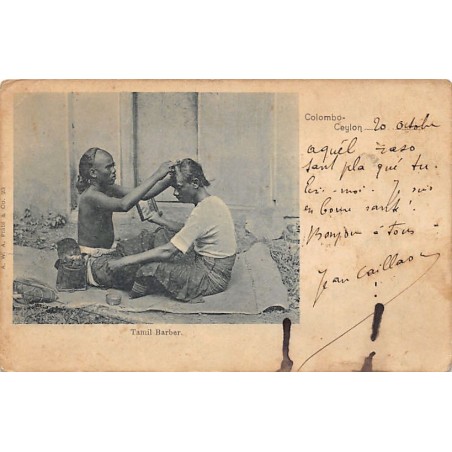 Colombo-
Ceylon 20 octobre
aquél
sant pla qué tu
Ecri-moi. Je suis
en bonne santé!
Bonjour à tous
Jean Caillaou
!
Tamil Barber.
A. W. A. Plâté & Co.